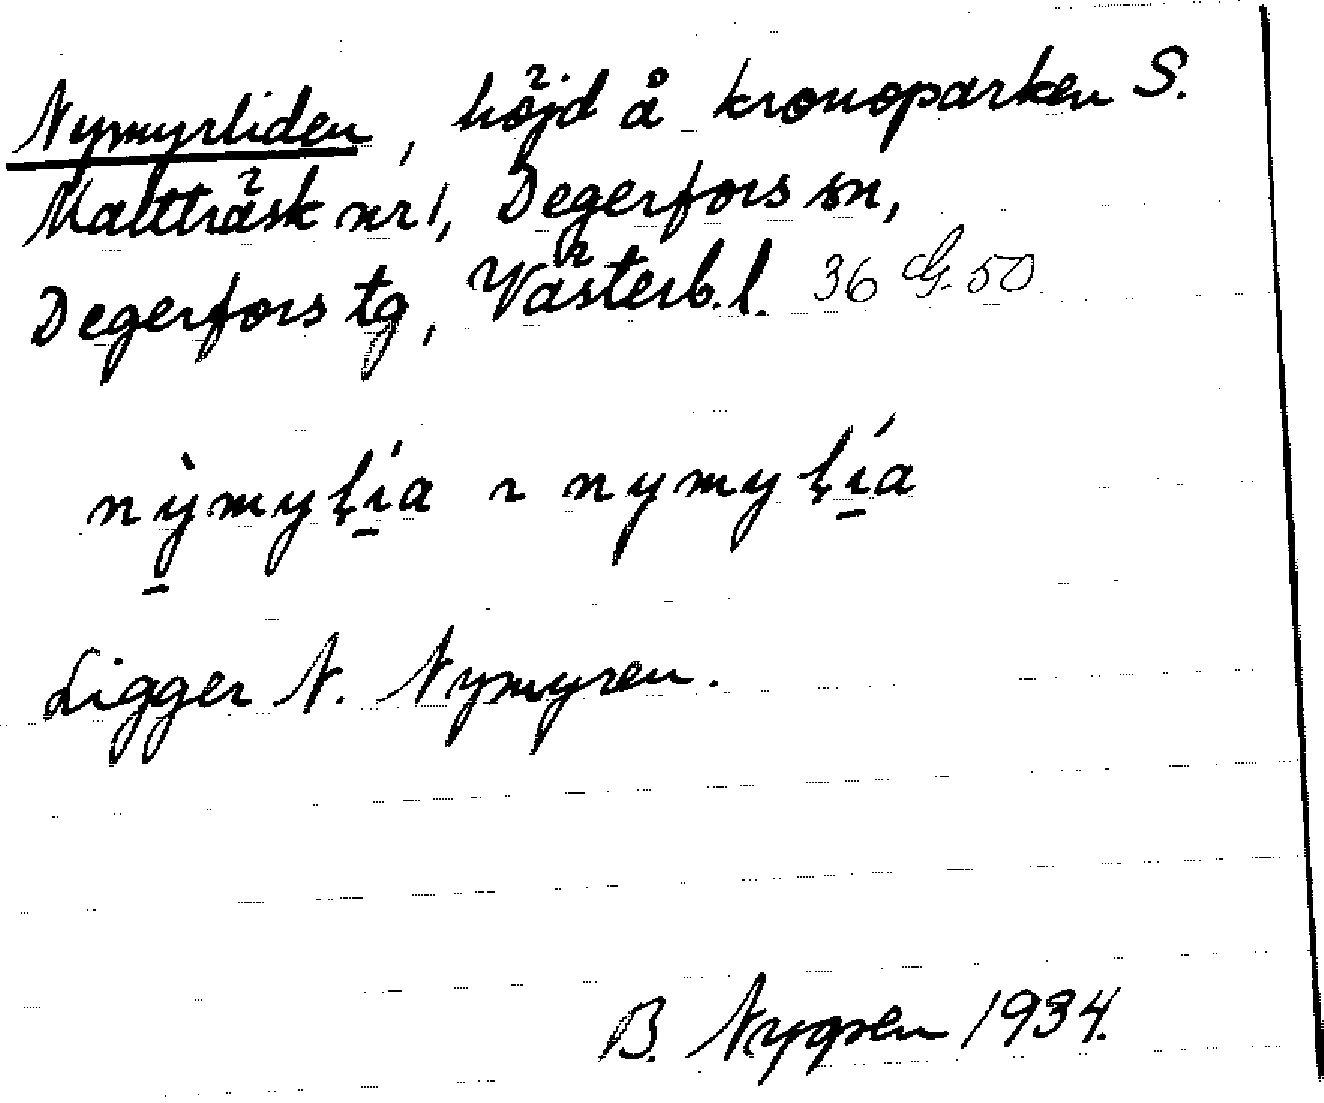 Nymyrliden, höjd å kronoparken S.
Maltträsk nr 1, Degerfors sn,
Degerfors tg, Västerb. l. 36 G. 50
nỳmyḷía ~ nymyḷía
Ligger N. Nymyren.
B. Nygren 1934.